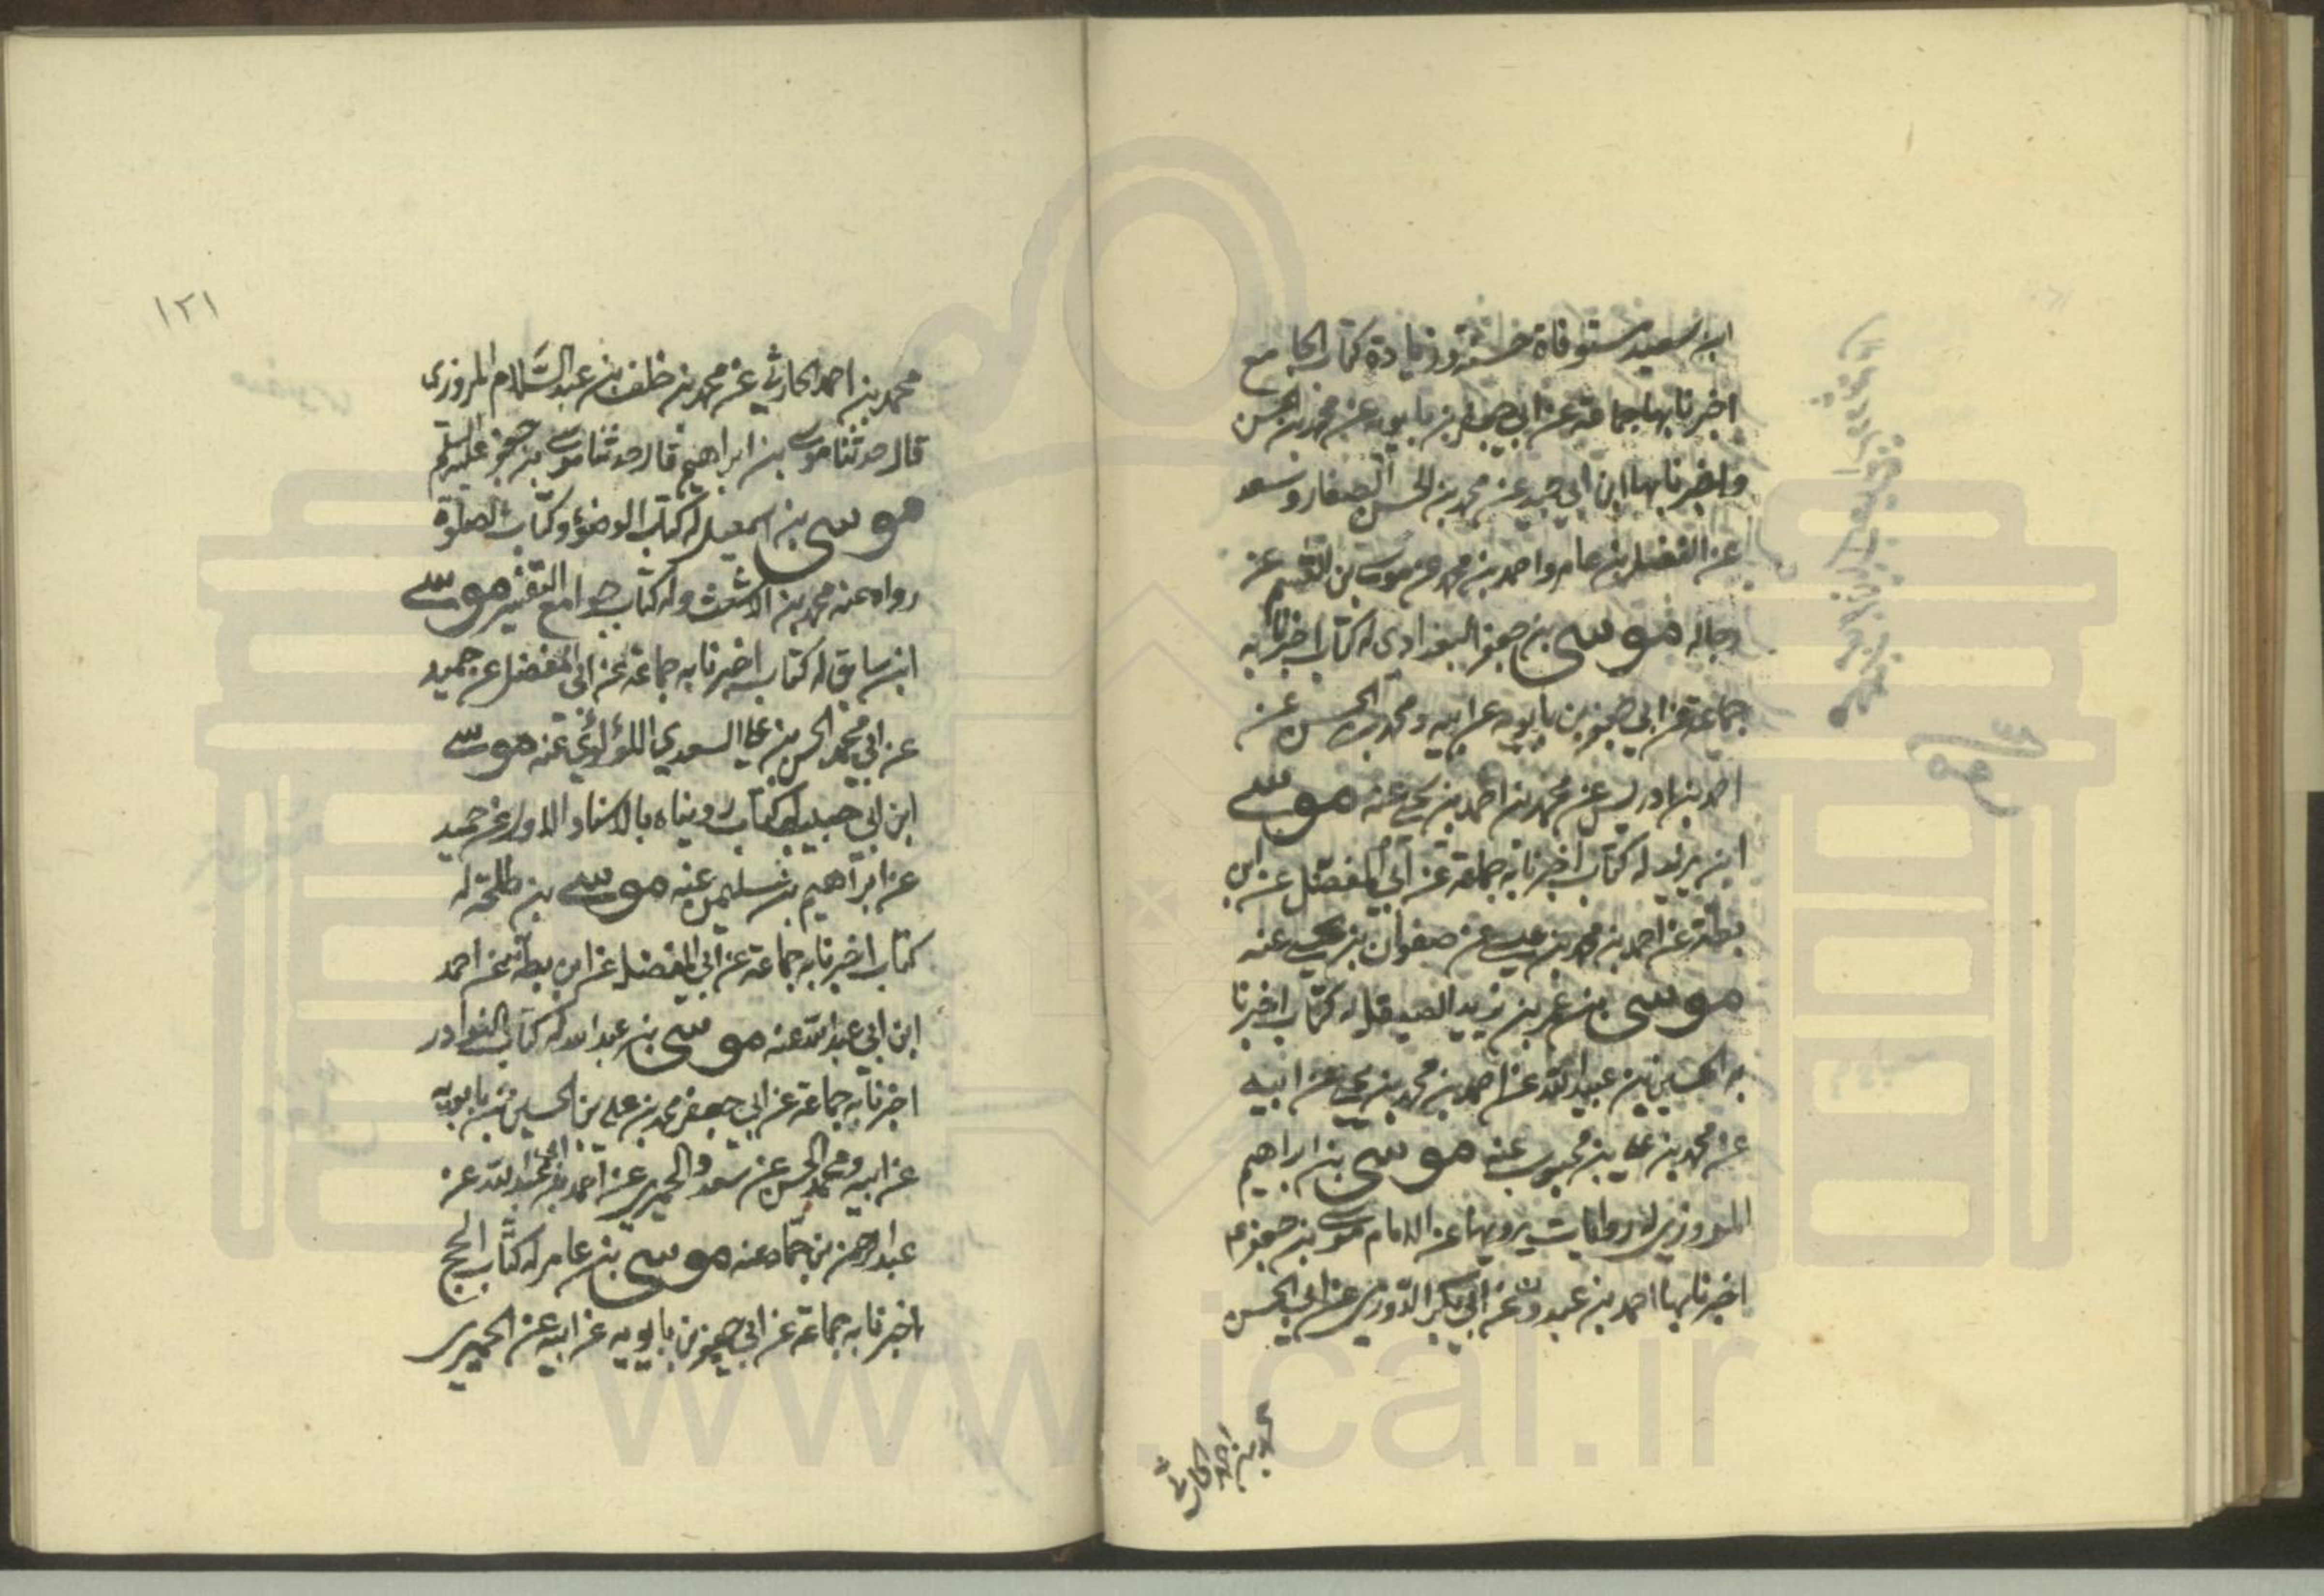 ابن سعيد مستوفاة حسنة وزيادة كتاب الجامع
اخبرنا بها جماعة عن ابي جعفر بن بابويه عن محمد بن الحسن
واخبرنا بها ابن ابي جيد عن محمد بن الحسن الصفار وسعد
عن الفضل بن عامر واحمد بن محمد عن موسى بن القسم عن
رجاله موسى بن جعفر البغدادي له كتاب اخبرنا به
جماعة عن ابي جعفر بن بابويه عن ابيه ومحمد بن الحسن عن
احمد بن ادريس عن محمد بن احمد بن يحيى عنه موسى
ابن يزيد له كتاب اخبرنا به جماعة عن ابي المفضل عن ابن
بطة عن احمد بن محمد بن عيسى عن صفوان بن يحيى عنه
موسى بن عمر بن يزيد الصيقل له كتاب اخبرنا
به الحسين بن عبيد الله عن احمد بن محمد بن يحيى عن ابيه
عن محمد بن على بن محبوب عنه موسى بن ابراهيم
المروزي له روايات يرويها عن الامام موسى بن جعفر ع
اخبرنا بها احمد بن عبدون عن ابي بكر الدوري عن ابي الحسن
محمد بن احمد الحارثي
١٢١
محمد بن احمد الحارثي عن محمد بن خلف بن عبد السَّلام المروزى
قال حدثنا موسى بن ابراهيم قال حدثنا موسى بن جعفر عليه السلم
موسى بن اسمعيل له كتاب الوضوء وكتاب الصلوة
رواه عنه محمد بن الاشعث وله كتاب جوامع التفسير موسى
ابن سابق له كتاب اخبرنا به جماعة عن ابي المفضل عن حميد
عن ابي محمد الحسن بن على السعدي اللؤلؤي عنه موسى
ابن ابي حبيب له كتاب رويناه بالاسناد الاول عن حميد
عن ابراهيم بن سليمن عنه موسى بن طلحة له
كتاب اخبرنا به جماعة عن ابي المفضل عن ابن بطة عن احمد
ابن ابي عبد الله عنه موسى بن عبد الله له كتاب النوادر
اخبرنا به جماعة عن ابي جعفر محمد بن علي بن الحسين بن بابويه
عن ابيه ومحمد الحسن عن سعد والحميري عن احمد بن ابي عبد الله عن
عبد الرحمن بن حماد عنه موسى بن عامر له كتاب الحج
اخبرنا به جماعة عن ابي جعفر بن بابويه عن ابيه عن الحميرى
www.ical.ir